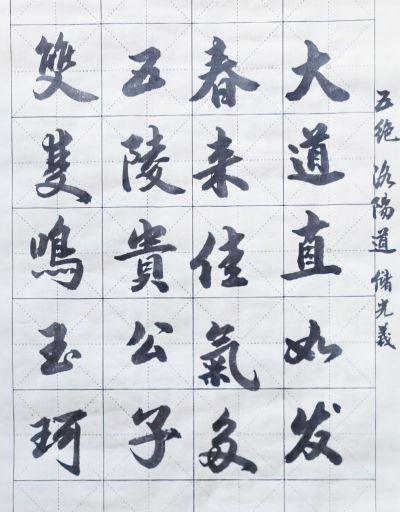 五绝 洛陽道 储光羲
大道直如发
春来佳氣多
五陵貴公子
雙雙鳴玉珂